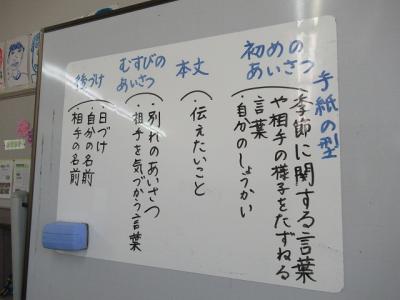 手紙の型
初めの
あいさつ
・季節に関する言葉
や相手の様子をたずねる
言葉
・自分のしょうかい
本文
・伝えたいこと
むすびの
あいさつ
・別れのあいさつ
・相手を気づかう言葉
後づけ
・日づけ
・自分の名前
・相手の名前